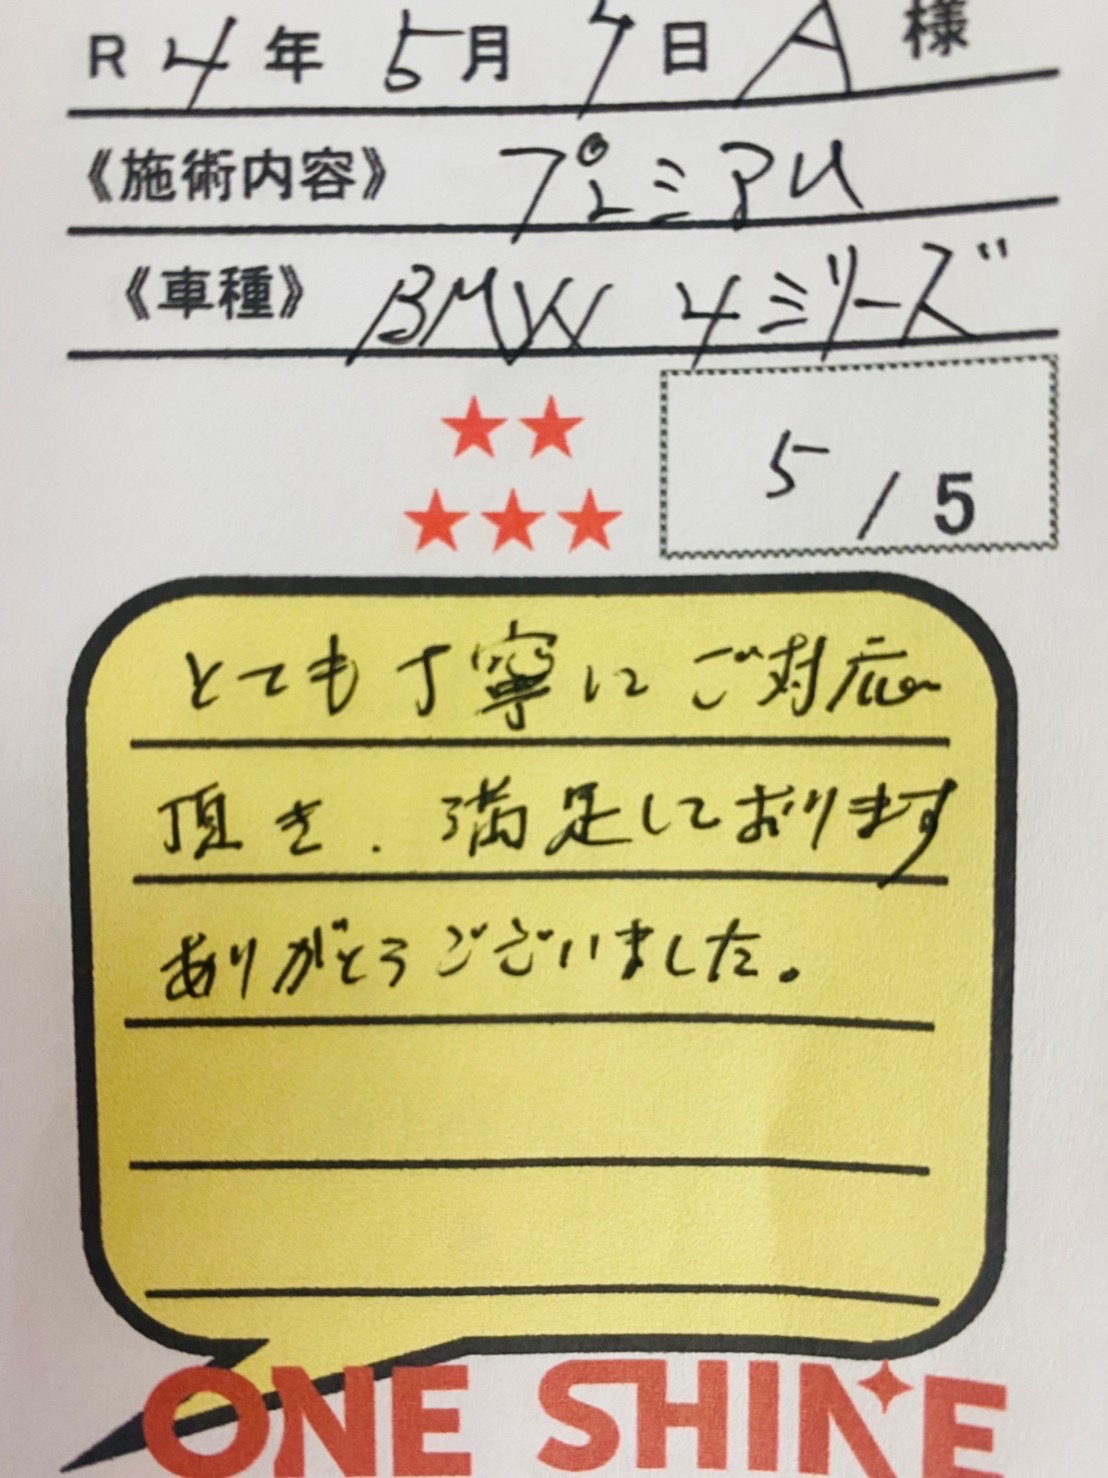 R 4 年 5 月 7 日 A 様
《施術内容》 プレミアム
《車種》 BMW 4シリーズ
5 / 5
とても丁寧にご対応
頂き、満足しております
ありがとうございました。
ONE SHINE